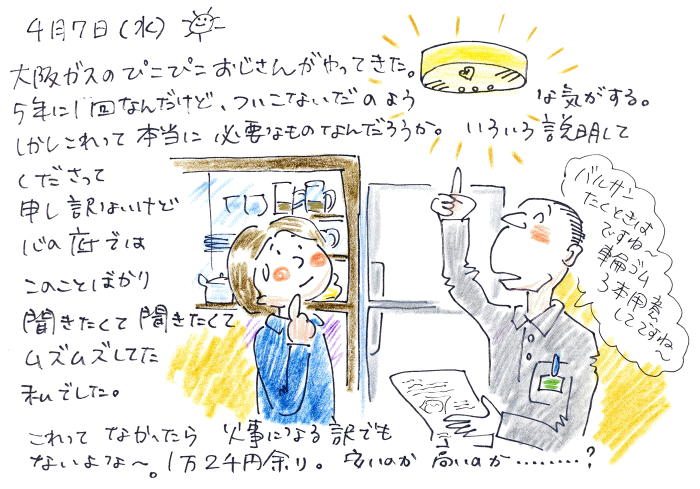 4月7日(水)
大阪ガスのぴこぴこおじさんがやってきた。
5年に1回なんだけど、ついこないだのような気がする。
しかしこれって本当に必要なものなんだろうか。いろいろ説明して
くださって
申し訳ないけど
心の底では
このことばかり
聞きたくて聞きたくて
ムズムズしてた
私でした。
バルサン
たくときは
ですね〜
輪ゴム
3本用意
してですね〜
これってなかったら火事になる訳でも
ないよな〜。1万2千円余り。安いのか高いのか………?